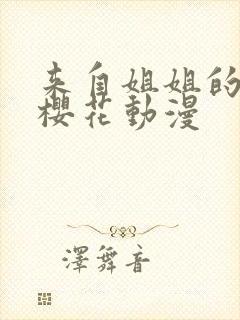 来自姐姐的
樱花動漫
澤舞音